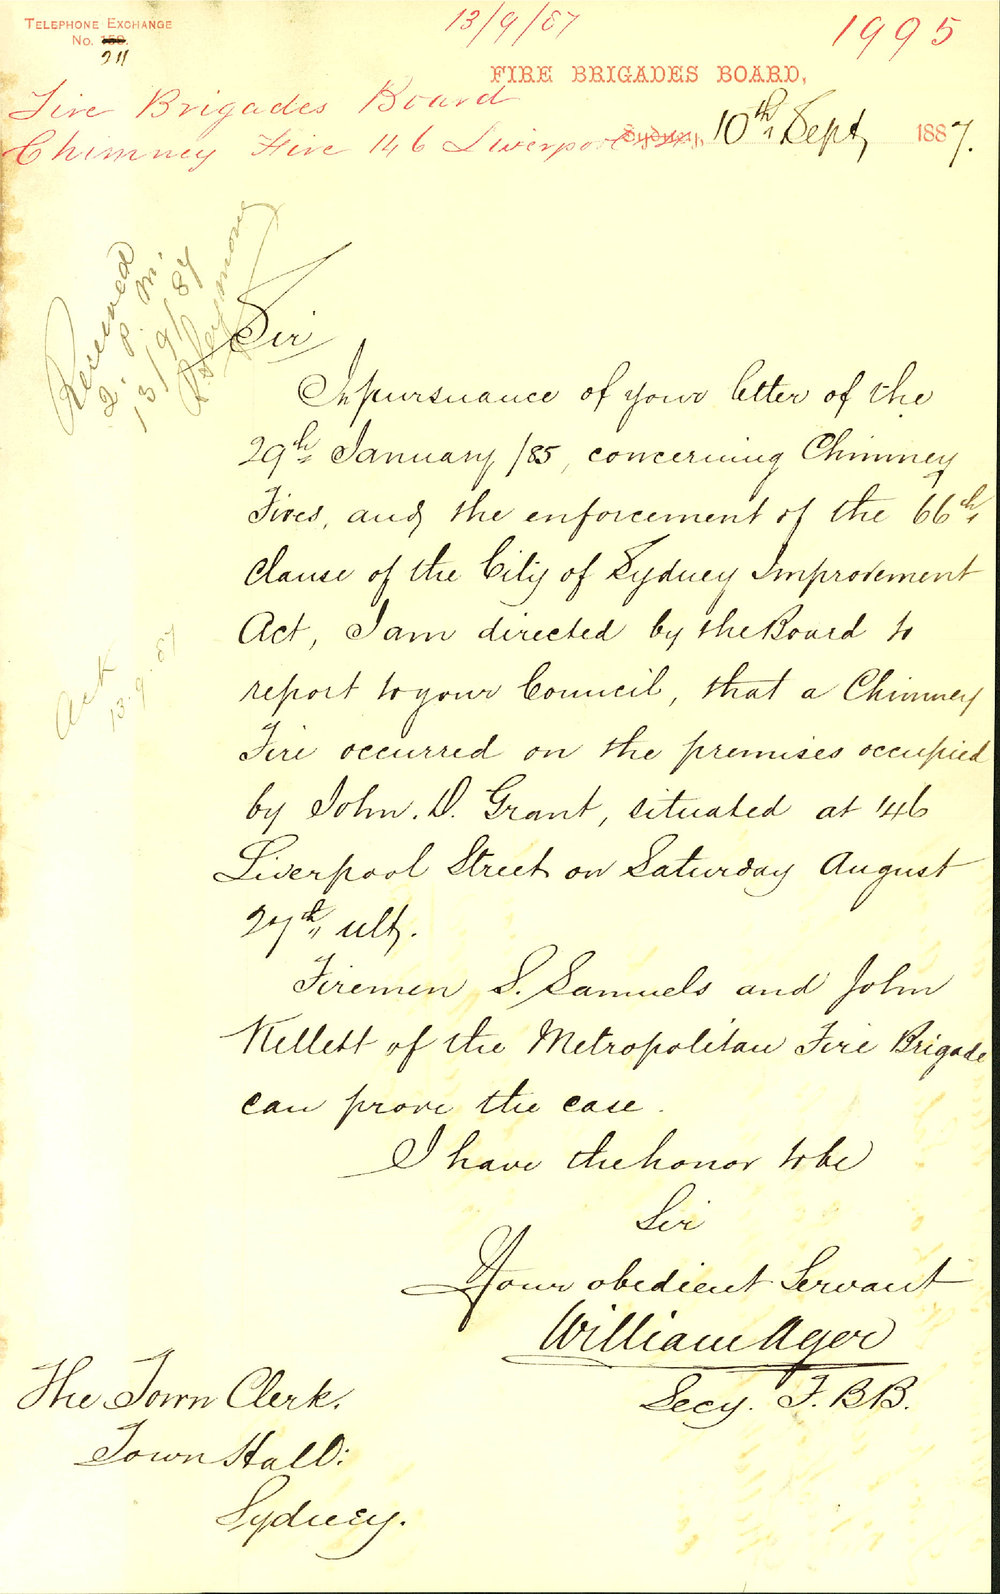 TELEPHONE EXCHANGE
No. 158.
211
13/9/87
1995
FIRE BRIGADES BOARD,
Fire Brigades Board
Chimney Fire 146 Liverpool
Sydney, 10th Sept, 1887.
Received
2. P. M.
13/9/87
Sir
In pursuance of your letter of the
29th January /85, concerning Chimney
Fires, and the enforcement of the 66th
Clause of the City of Sydney Improvement
Act, I am directed by the Board to
report to your Council, that a Chimney
Fire occurred on the premises occupied
by John. D. Grant, situated at 146
Liverpool Street on Saturday August
27th ult.
Ack
13.9.87
Firemen S. Samuels and John
Kellett of the Metropolitan Fire Brigade
can prove the case.
I have the honor to be
Sir
Your obedient Servant
William Ager
Secy. F.B.B.
The Town Clerk.
Town Hall:
Sydney.